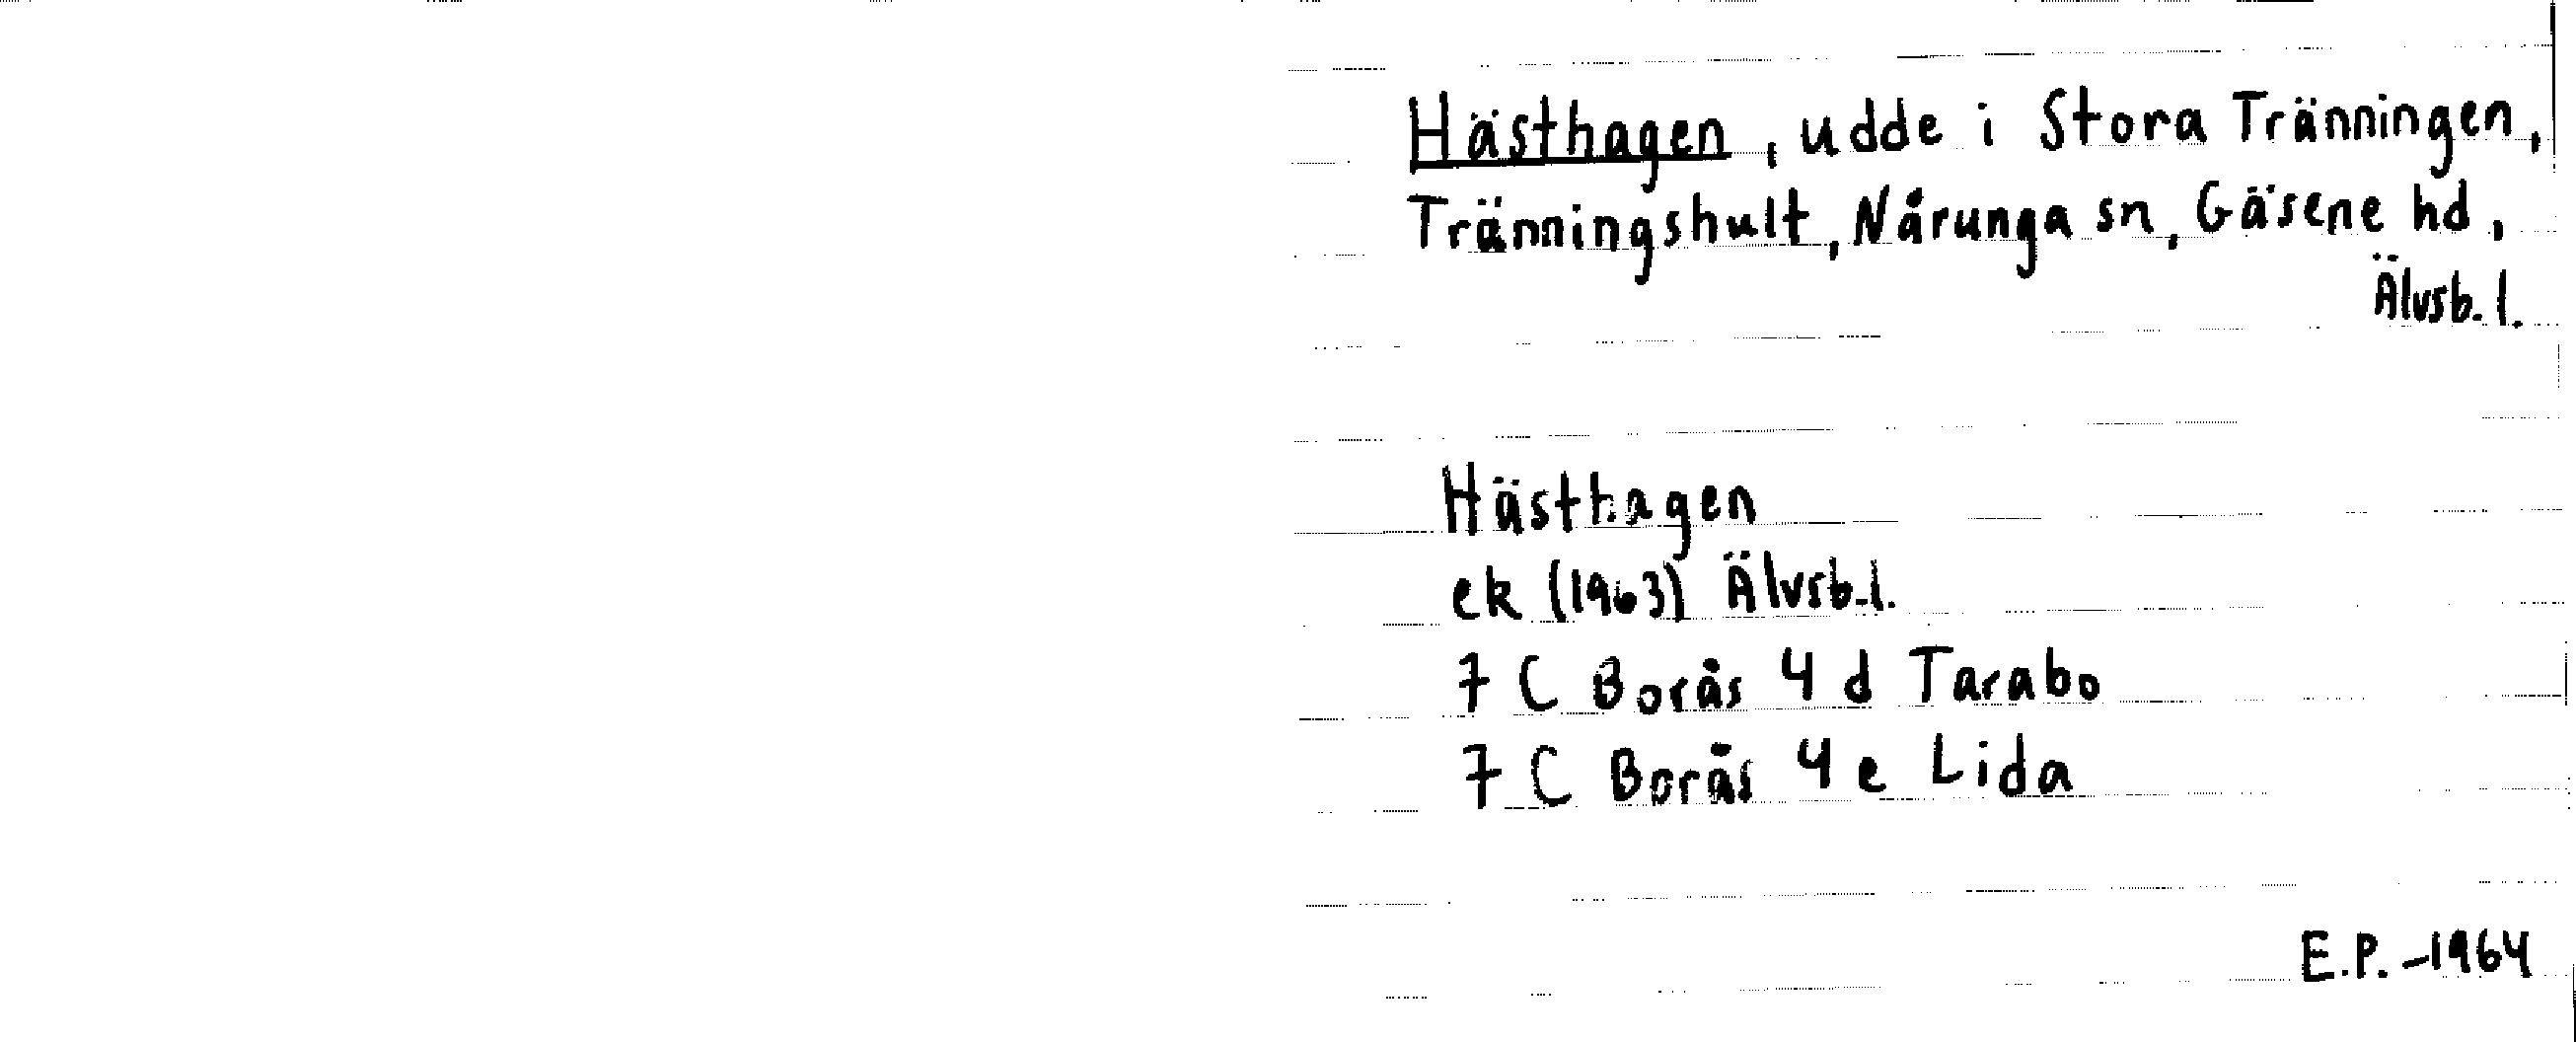 Hästhagen, udde i Stora Tränningen,
Tränningshult, Nårunga sn, Gäsene hd,
Älvsb. l.
Hästhagen
ek (1963) Älvsb. l.
7 C Borås 4 d Tarabo
7 C Borås 4 e Lida
E.P. -1964